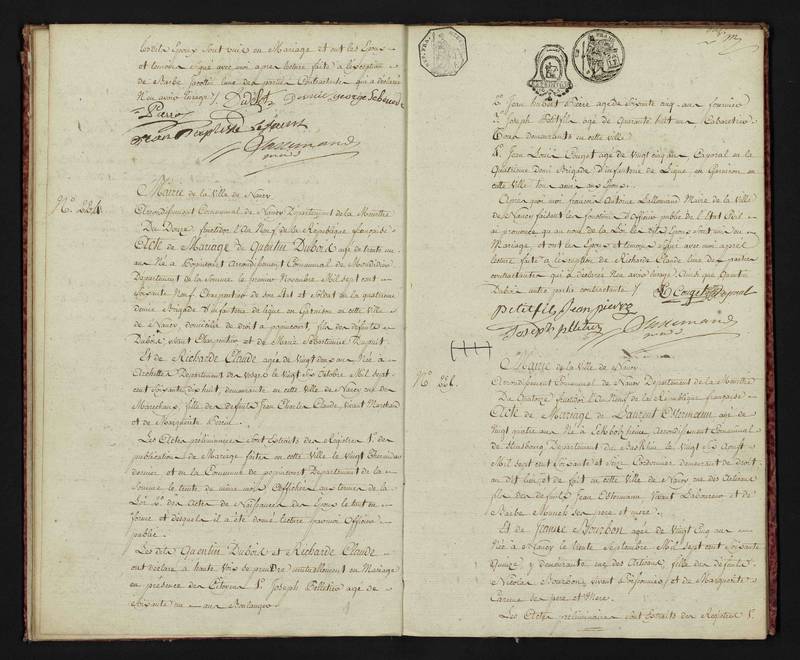 lesdits Epoux sont unis en Mariage et ont les Epoux
et temoins signé avec moi apres lecture faite a l'exception
de Barbe l'une des parties Contractantes qui a declaré
N'en avoir l'usage
george
Pierre
Jean Baptiste
Lallemand
N.º 224.
Mairie de la Ville de Nancy
Arrondissement Communal de Nancy Departement de la Meurthe
Du Douze fructidor l'An Neuf de la République française
Acte de Mariage de Quentin Dubois agé de trente un
an Né a Arondissement Communal de Mondidier
Departement de la Somme le premier Novembre Mil sept cent
soixante Neuf Charpentier de son Etat et Soldat de la quatrieme
demie Brigade d'Infanterie de ligne en Garnison en cette Ville
de Nancy domicilié de droit a fils de defunts
Dubois vivant Charpentier et de Marie
Et de Richarde Claude agée de Vingt deux ans Née à
Archettes Departement des Vosges le Vingt six Octobre Mil sept
cent soixante dix huit, demeurante en cette Ville de Nancy rue des
Marechaux, fille de defunts Jean Charles Claude, vivant Marchand
et de Marguerite
Les Actes preliminaires sont Extraits des Registres 1.º des
publication de Mariage faites en cette Ville le Vingt Thermidor
dernier et en la Commune de Departement de la
Somme le trente du même mois Affichées au terme de la
Loi 2.º des Actes de Naissances des Epoux le tout en
forme et desquels il a été donné lecture par moi Officier
public.
Les dits Quentin Dubois et Richarde Claude
ont déclaré a haute Voix se prendre mutuellement en Mariage
en présence des Citoyens 1.º Joseph Pelletier agé de
soixante un ans Boulanger
2.º Jean hubert Pierre agé de soixante cinq ans fournier
3.º Joseph Petitfils agé de quarante huit ans Cabaretier
Tous demeurants en cette ville
4.º Jean Louis Couget agé de Vingt cinq ans Caporal en la
Quatrieme demi Brigade d'Infanterie de Ligne en Garnison en
cette Ville tous amis aux Epoux.
Apres quoi moi françois Antoine Lallemand Maire de la Ville
de Nancy faisant les fonctions d'Officier public de l'Etat Civil
ai prononcé qu'au nom de la Loi les dits Epoux sont unis en
Mariage, et ont les Epoux et temoins signé avec moi apres
lecture faite a l'exception de Richarde Claude l'une des parties
contractantes qui a declaré n'en avoir l'usage ainsi que Quentin
Dubois autre partie contractante
Couget Caporal
petitfils Jean pierre
Joseph pelletier
Lallemand
N.º 225.
Mairie de la Ville de Nancy.
Arrondissement Communal de Nancy Departement de la Meurthe
Du Quatorze fructidor l'An Neuf de la République française
Acte de Mariage de Laurent Ostermann agé de
Vingt quatre ans Né a Arrondissement Communal
de Strasbourg Departement du Bas Rhin le Vingt six Aoust
Mil sept cent soixante et Seize Cordonnier demeurant de droit
au dit lieu, et de fait en cette Ville de Nancy rue des Artisans
fils des defunts Jean Ostermann Vivant Laboureur et de
Barbe ses pere et mere.
Et de Jeanne Bourbon agée de Vingt Cinq ans
Née à Nancy le trente Septembre Mil sept cent soixante
Quinze y demeurante rue des Artisans, fille des defunts
Nicolas Bourbon, vivant et de Marguerite
ses pere et Mere.
Les Actes preliminaires sont Extraits des Registres 1.º